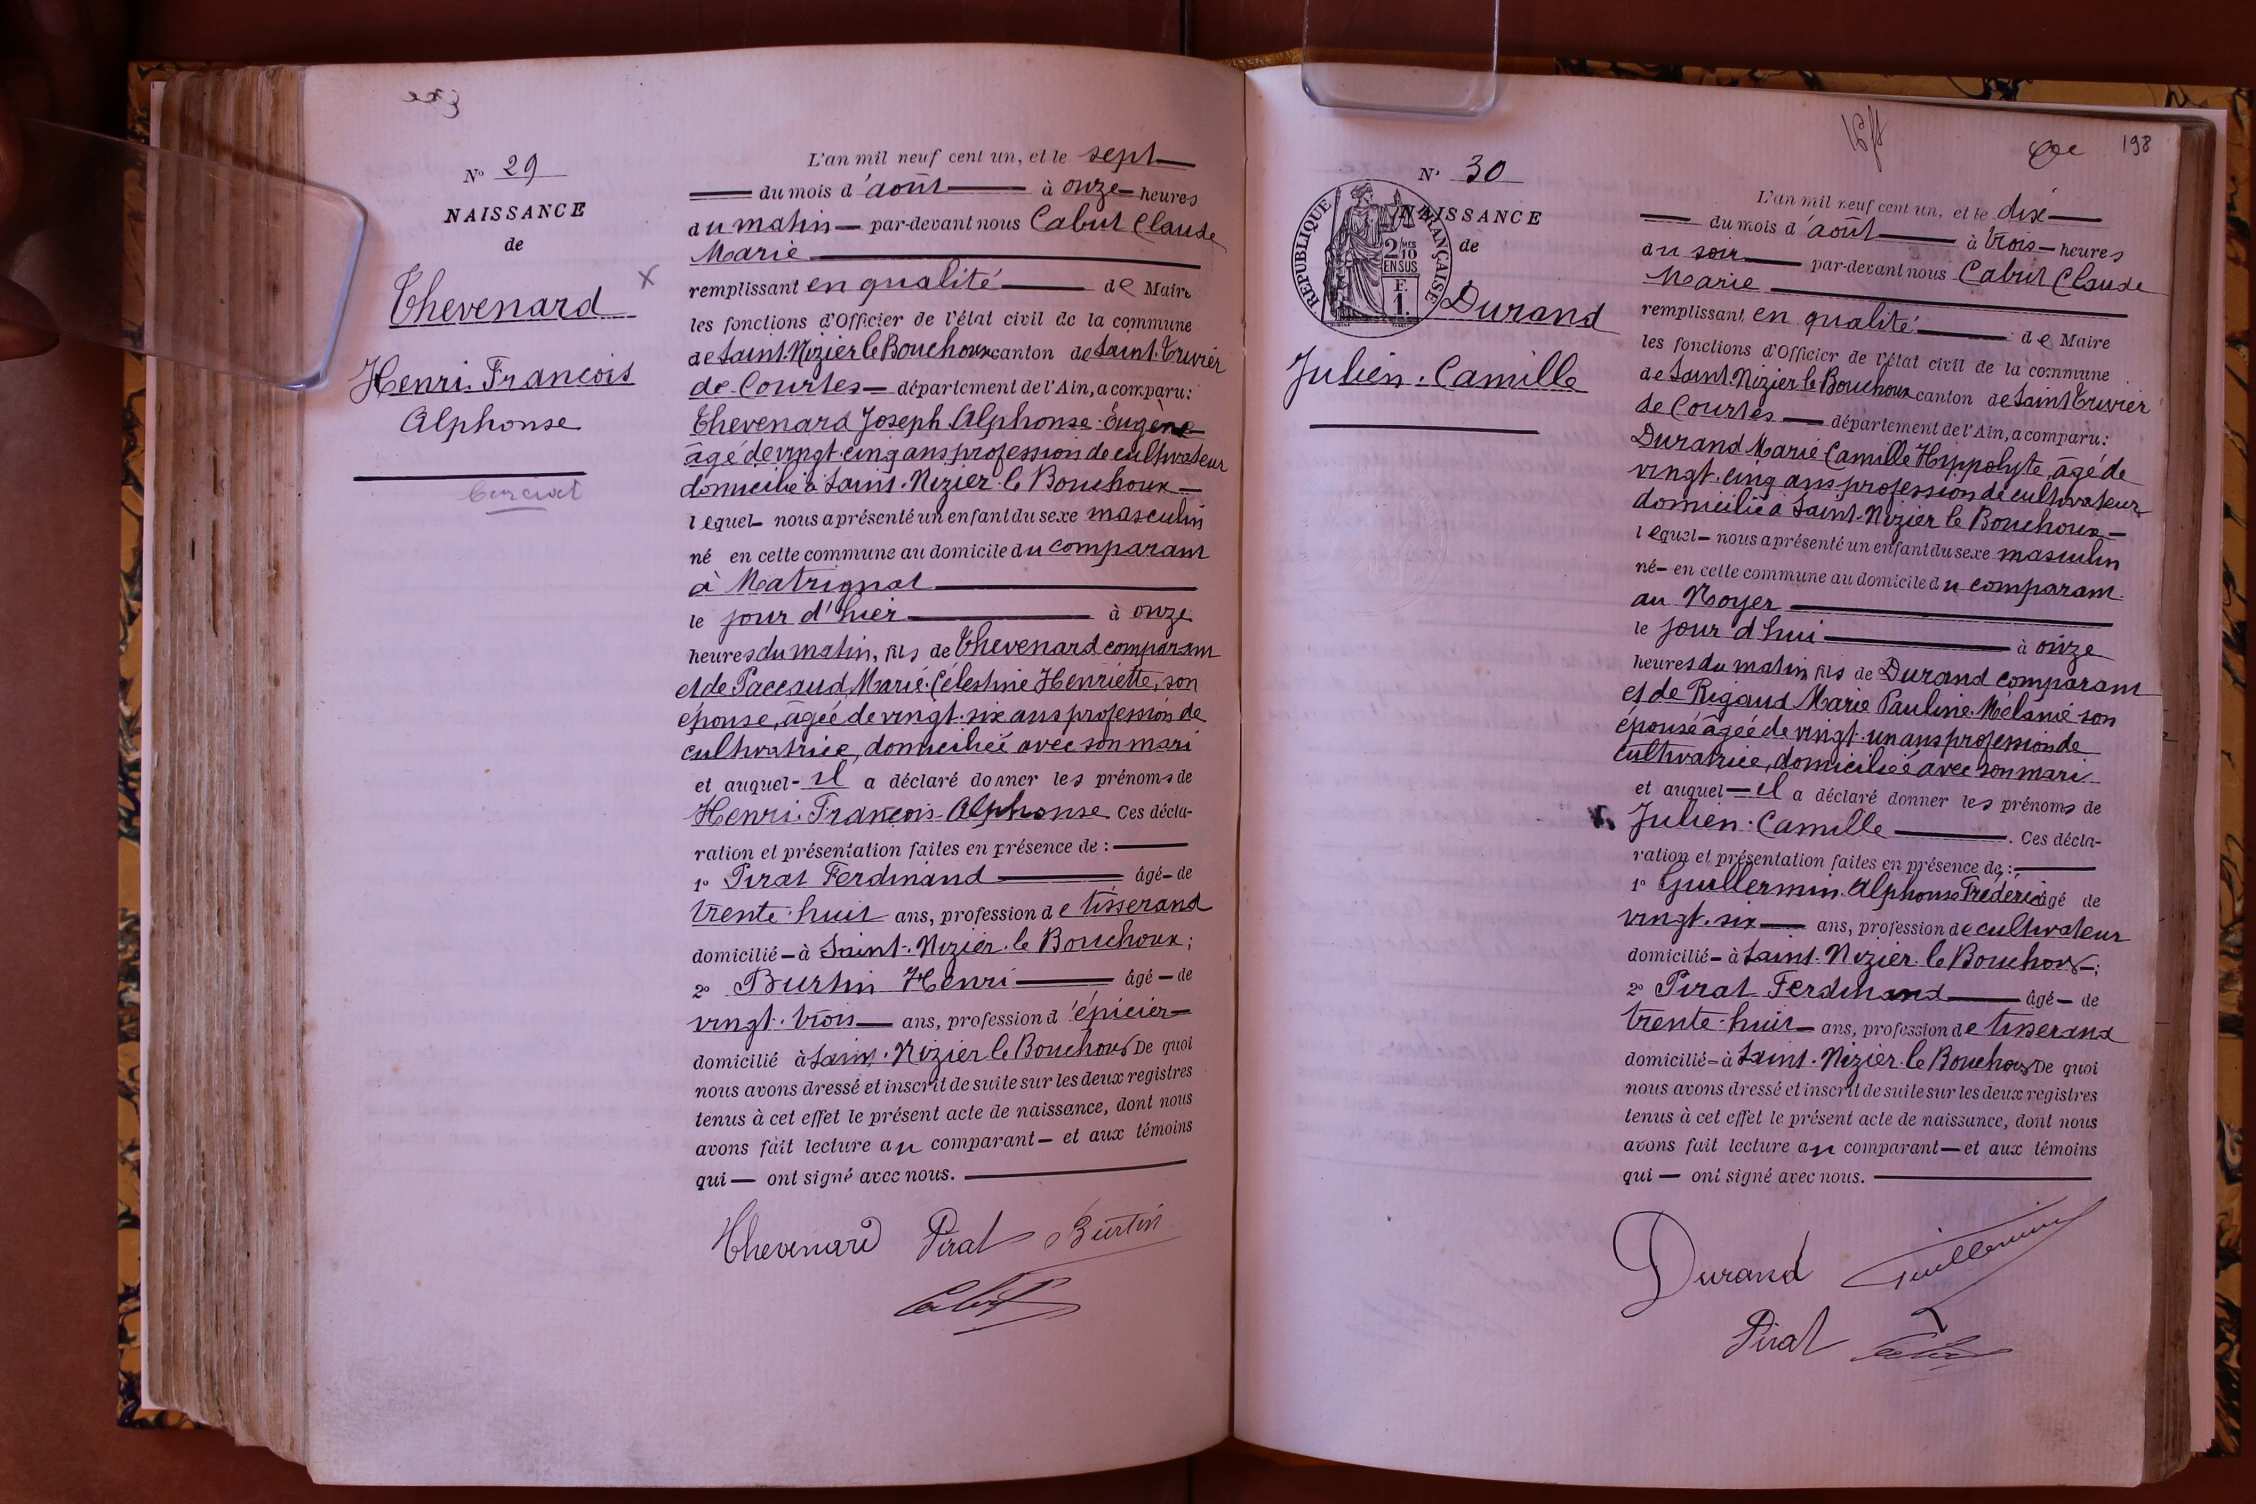 N° 29
NAISSANCE
de
Thevenard
Henri François
Alphonse
L'an mil neuf cent un, et le sept
du mois d'août à onze heures
du matin par-devant nous Cabut Claude
Marie
remplissant en qualité de Maire
les fonctions d'Officier de l'état civil de la commune
de Saint-Nizier le Bouchoux canton de Saint-Trivier
de Courtes département de l'Ain, a comparu:
Thevenard Joseph Alphonse Eugène
âgé de vingt-cinq ans profession de cultivateur
domicilié à Saint-Nizier le Bouchoux
lequel nous a présenté un enfant du sexe masculin
né en cette commune au domicile du comparant
à Matrignat
le jour d'hier à onze
heures du matin, fils de Thevenard comparant
et de Paccaud Marie Célestine Henriette, son
épouse, âgée de vingt-six ans profession de
cultivatrice, domiciliée avec son mari
et auquel il a déclaré donner les prénoms de
Henri François Alphonse Ces décla-
ration et présentation faites en présence de :
1° Pirat Ferdinand âgé de
trente-huit ans, profession de tisserand
domicilié à Saint-Nizier-le Bouchoux;
2° Burtin Henri âgé de
vingt-trois ans, profession d'épicier
domicilié à Saint-Nizier le Bouchoux De quoi
nous avons dressé et inscrit de suite sur les deux registres
tenus à cet effet le présent acte de naissance, dont nous
avons fait lecture au comparant et aux témoins
qui ont signé avec nous.
Thevenard Pirat Burtin
Cabut
198
N° 30
NAISSANCE
de
RÉPUBLIQUE FRANÇAISE
2/10 EN SUS
F. 1.
Durand
Julien-Camille
L'an mil neuf cent un, et le dix
du mois d'août à trois heures
du soir par-devant nous Cabut Claude
Marie
remplissant en qualité de Maire
les fonctions d'Officier de l'état civil de la commune
de Saint-Nizier le Bouchoux canton de Saint Trivier
de Courtes département de l'Ain, a comparu:
Durand Marie Camille Hippolyte, âgé de
vingt-cinq ans profession de cultivateur
domicilié à Saint-Nizier le Bouchoux
lequel nous a présenté un enfant du sexe masculin
né en cette commune au domicile du comparant
au Noyer
le jour d'hui à onze
heures du matin fils de Durand comparant
et de Rigaud Marie Pauline Mélanie son
épouse âgée de vingt-un ans profession de
cultivatrice, domiciliée avec son mari
et auquel il a déclaré donner les prénoms de
Julien-Camille. Ces décla-
ration et présentation faites en présence de :
1° Guillermin Alphonse Frédéric âgé de
vingt-six ans, profession de cultivateur
domicilié à Saint-Nizier le Bouchoux;
2° Pirat Ferdinand âgé de
trente-huit ans, profession de tisserand
domicilié à Saint-Nizier-le Bouchoux De quoi
nous avons dressé et inscrit de suite sur les deux registres
tenus à cet effet le présent acte de naissance, dont nous
avons fait lecture au comparant et aux témoins
qui ont signé avec nous.
Durand Guillermin
Pirat Cabut